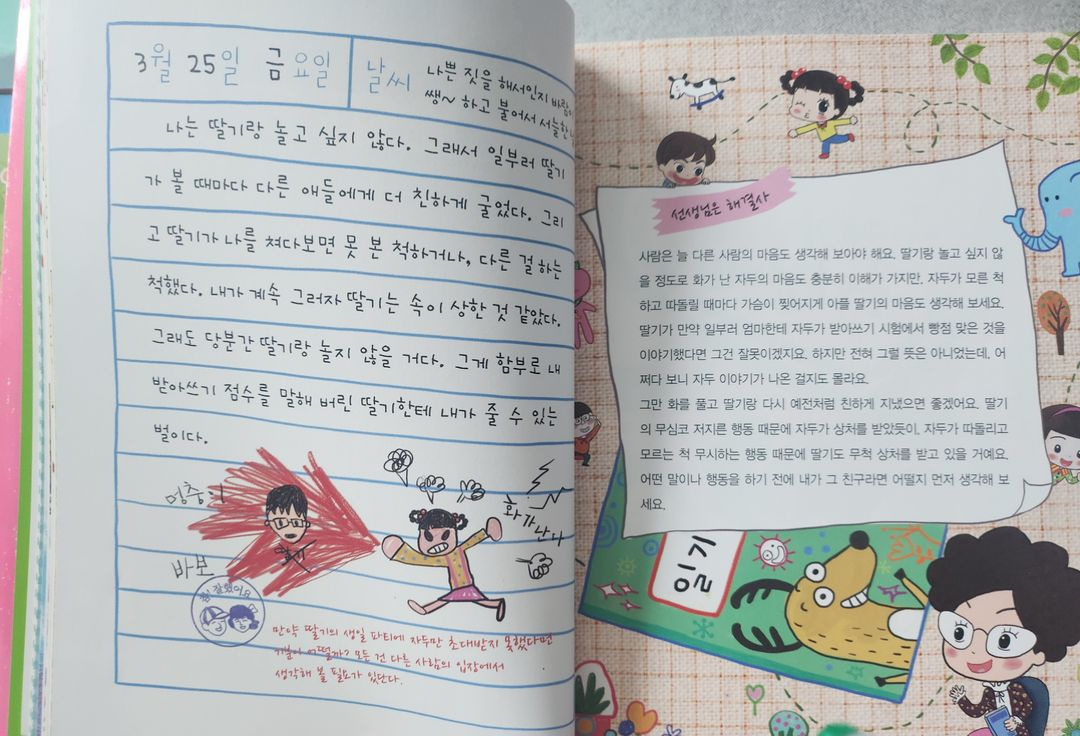 3월 25일 금요일
날씨
나쁜 짓을 해서인지 바람이
쌩~ 하고 불어서 서늘한
나는 딸기랑 놀고 싶지 않다. 그래서 일부러 딸기
가 볼 때마다 다른 애들에게 더 친하게 굴었다. 그리
고 딸기가 나를 쳐다보면 못 본 척하거나, 다른 걸 하는
척했다. 내가 계속 그러자 딸기는 속이 상한 것 같았다.
그래도 당분간 딸기랑 놀지 않을 거다. 그게 함부로 내
받아쓰기 점수를 말해 버린 딸기한테 내가 줄 수 있는
벌이다.
멍충이
바보
화가 난다
참! 잘했어요
만약 딸기의 생일 파티에 자두만 초대받지 못했다면
기분이 어떨까? 모든 건 다른 사람의 입장에서
생각해 볼 필요가 있단다.
선생님은 해결사
사람은 늘 다른 사람의 마음도 생각해 보아야 해요. 딸기랑 놀고 싶지 않
을 정도로 화가 난 자두의 마음도 충분히 이해가 가지만, 자두가 모른 척
하고 따돌릴 때마다 가슴이 찢어지게 아플 딸기의 마음도 생각해 보세요.
딸기가 만약 일부러 엄마한테 자두가 받아쓰기 시험에서 빵점 맞은 것을
이야기했다면 그건 잘못이겠지요. 하지만 전혀 그럴 뜻은 아니었는데, 어
쩌다 보니 자두 이야기가 나온 걸지도 몰라요.
그만 화를 풀고 딸기랑 다시 예전처럼 친하게 지냈으면 좋겠어요. 딸기
의 무심코 저지른 행동 때문에 자두가 상처를 받았듯이, 자두가 따돌리고
모르는 척 무시하는 행동 때문에 딸기도 무척 상처를 받고 있을 거예요.
어떤 말이나 행동을 하기 전에 내가 그 친구라면 어떨지 먼저 생각해 보
세요.
일기